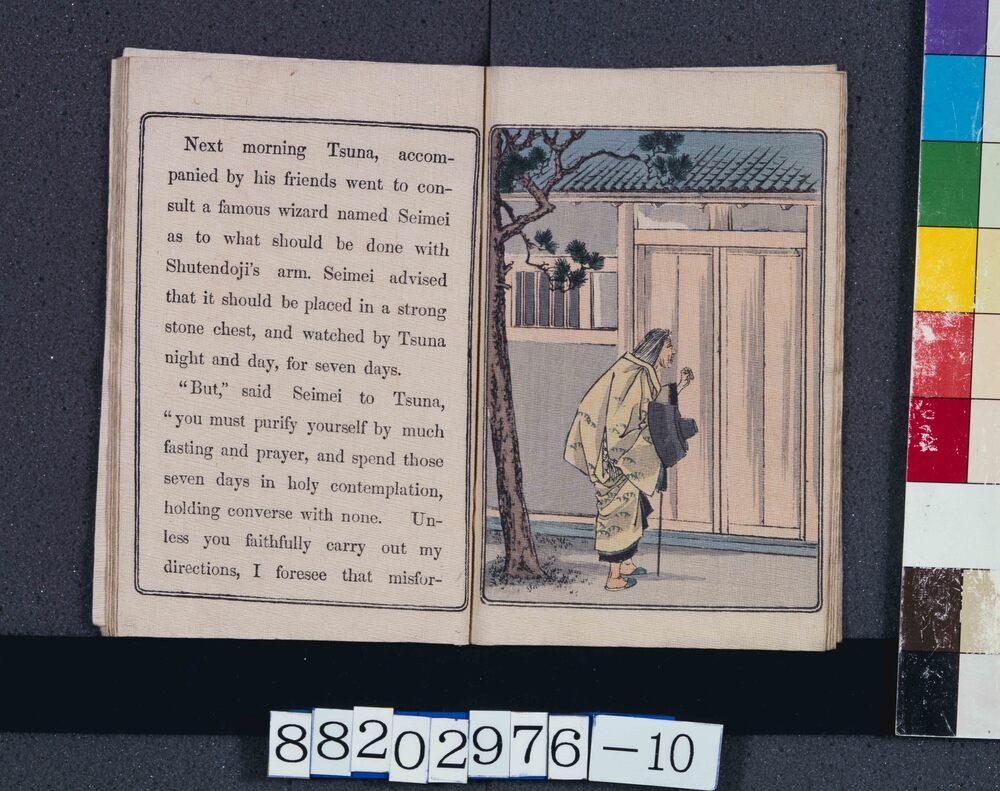 Next morning Tsuna, accom-
panied by his friends went to con-
sult a famous wizard named Seimei
as to what should be done with
Shutendoji's arm. Seimei advised
that it should be placed in a strong
stone chest, and watched by Tsuna
night and day, for seven days.
"But," said Seimei to Tsuna,
"you must purify yourself by much
fasting and prayer, and spend those
seven days in holy contemplation,
holding converse with none. Un-
less you faithfully carry out my
directions, I foresee that misfor-
88202976-10